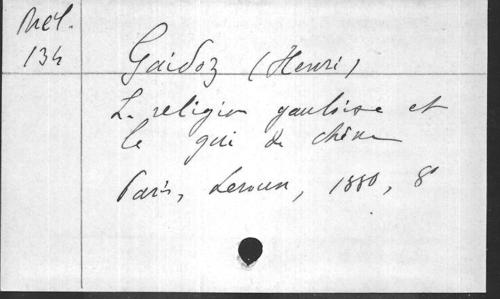 Mél.
134
Gaidoz (Henri)
La religion gauloise et
le gui de chêne
Paris, Leroux, 1880, 8°